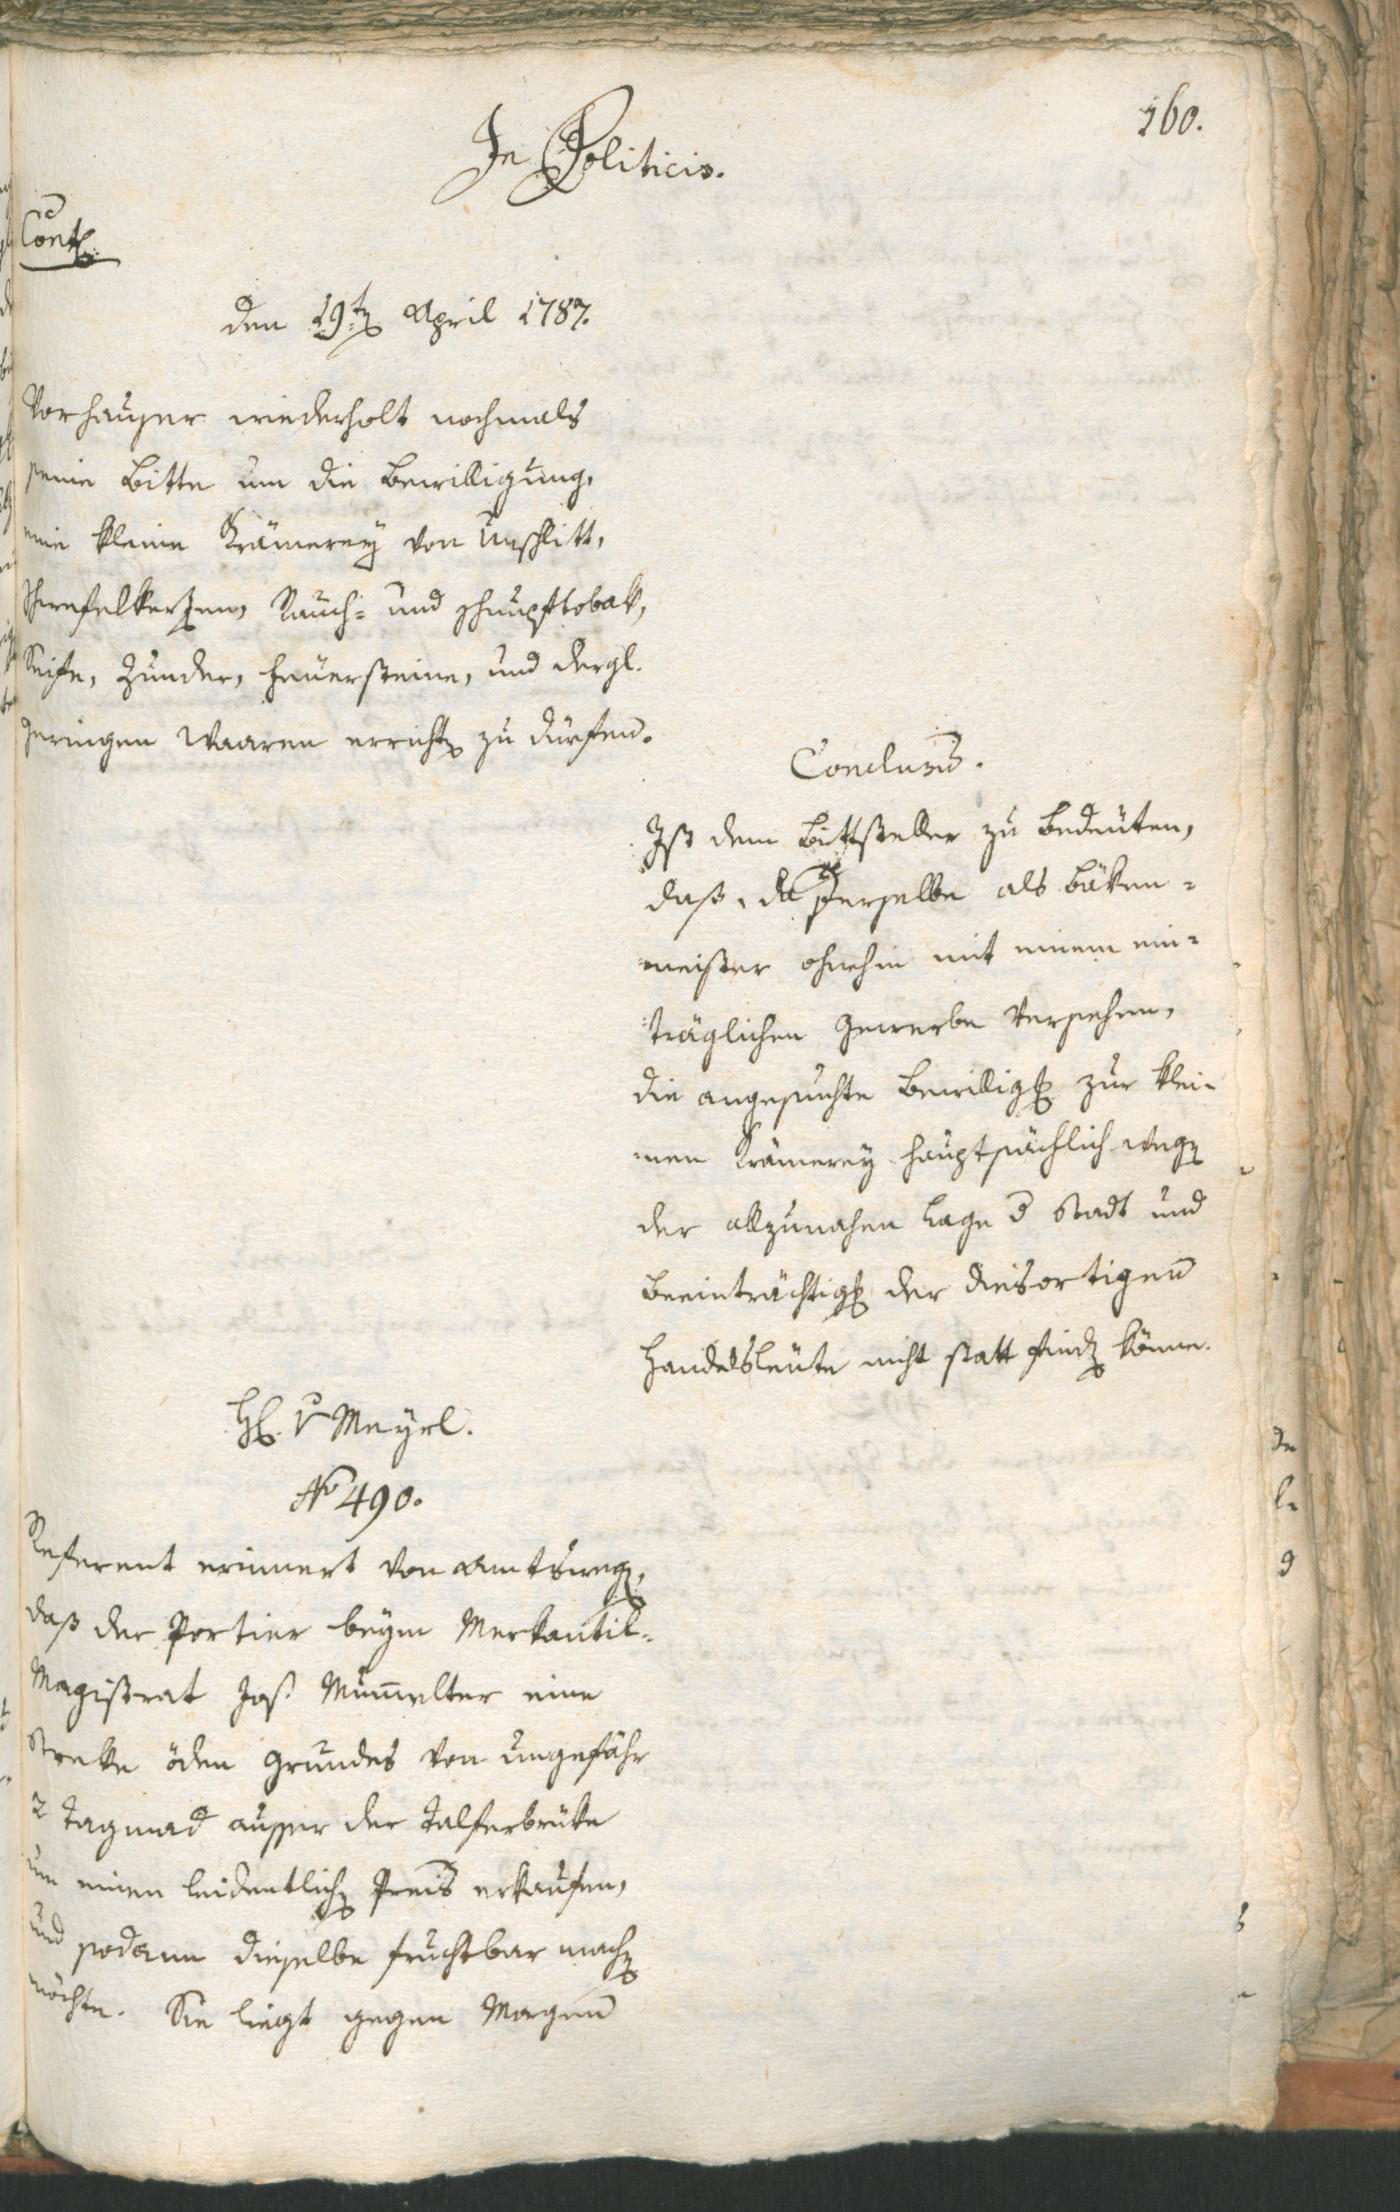 160.
In Politicis.
Cont.
den 19ten April 1787.
Vorhauser wiederholt nochmals
seine Bitte um die Bewilligung,
eine kleine Krämerey von Unschlitt,
Schwefelkerzen, Rauch- und Schnupftobak,
Seife, Zunder, Feuersteine, und dergl.
geringen Waaren errichten zu dürfen.
Conclusum.
Ist dem Bittsteller zu bedeuten,
daß, da derselbe als Bäken-
meister ohnehin mit einem ein-
träglichen Gewerbe versehen,
die angesuchte Bewilligung zur klei-
nen Krämerey hauptsächlich wegen
der allzunahen Lage der Stadt und
Beeinträchtigung der diesortigen
Handelsleute nicht statt finden könne.
H. v Meyrl.
No 490.
Referent erinnert von Amtswegen,
daß der Portier beym Merkantil-
Magistrat Jos. Mumelter eine
Streke öden Grundes von ungefähr
2 Tagmad ausser der Talferbrüke
um einen leidentlichen Preis erkaufen,
und sodann dieselbe fruchtbar machen
möchte. Sie liegt gegen Morgen